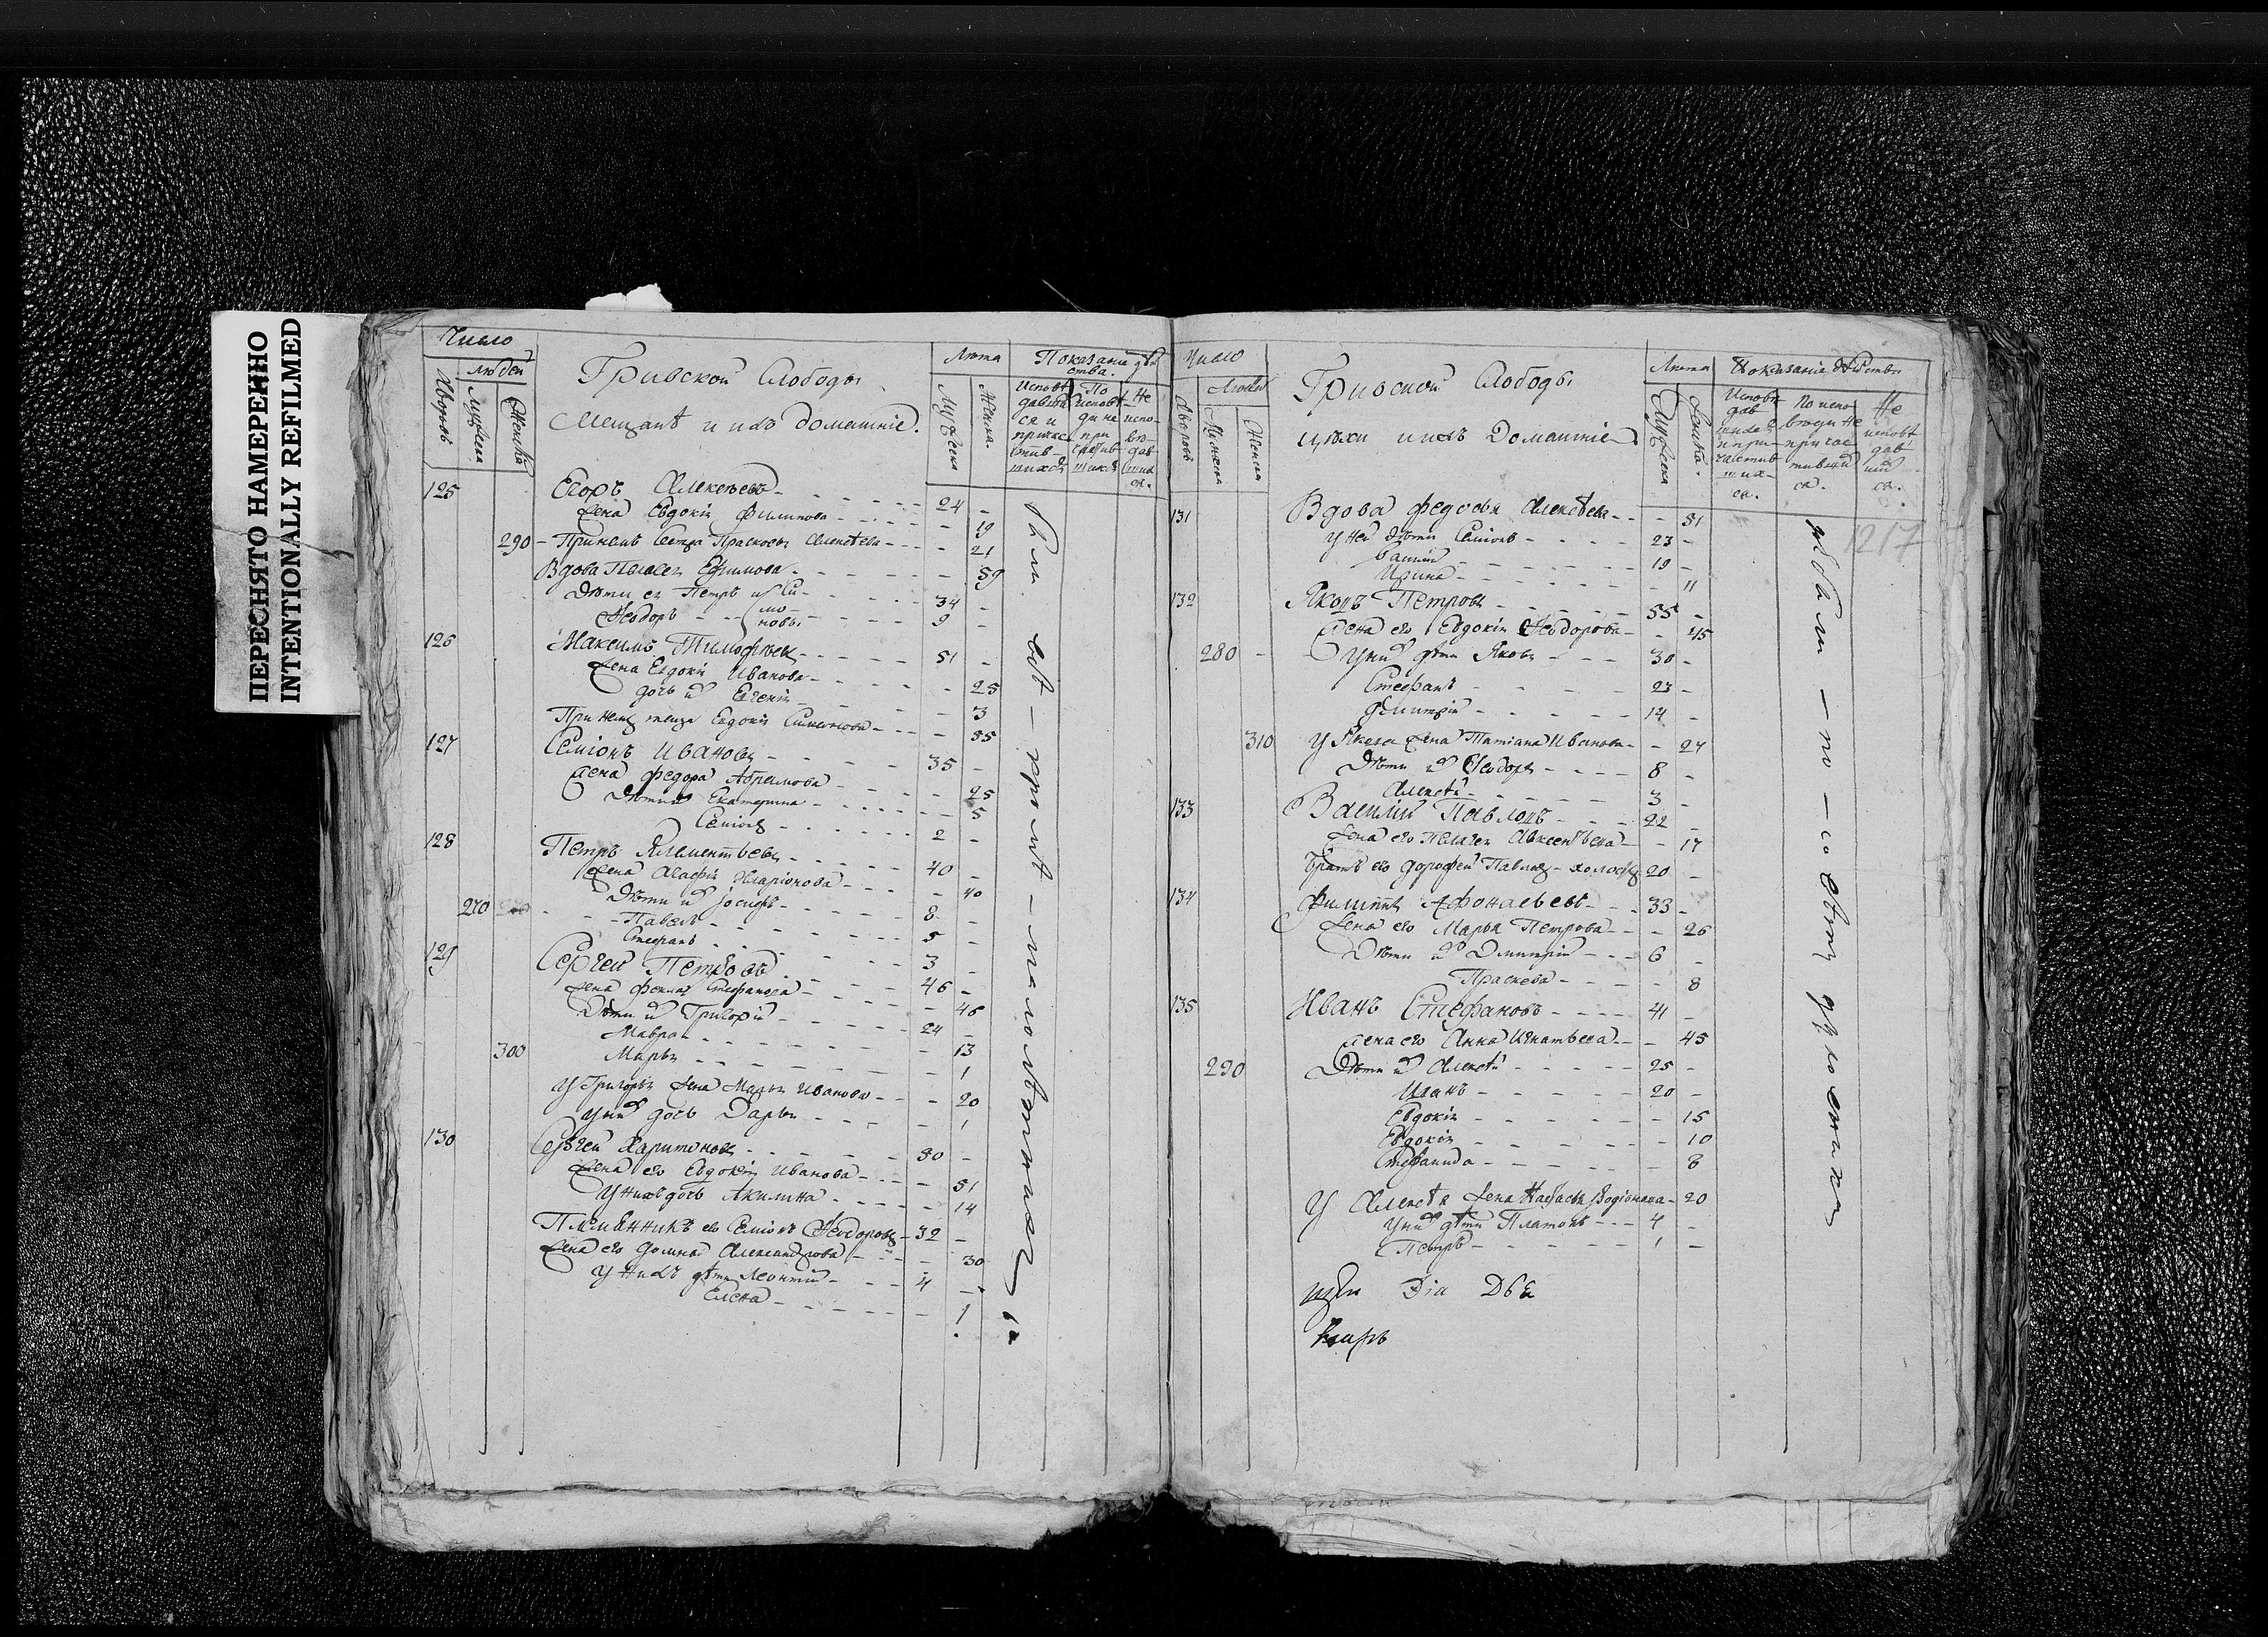 ПЕРЕСНЯТО НАМЕРЕННО
INTENTIONALLY REFILMED
Число
Людей
Дворовъ
Мужеска
Женска
Гривской Слободы
Мещанѣ и ихъ домашніе.
Лѣта
Мужеска
Женска.
Показаніе дѣйства.
Исповѣ
давших
ся и
причас
тив
шихся
По
исповѣ
ди не
при
частив
шихся
Не
испо-
вѣ-
дав
ших
ся.
125 Егоръ Алексѣевъ - 24 -
Жена Евдокія Филипова - - 19
290 - При немъ сестра Праскосья Алексѣева - - 21
Вдова Пелагея Ефимова - - 59
Дѣти ея Петръ и 34 -
Ѳеодоръ - - 9 -
126 Максимъ Тимофѣевъ - 51 -
Жена Евдокія Иванова - - 25
дочь их Евгенія - - 3
При немъ теща Евдокія Симионова - - 55
127 Семіонъ Ивановъ - 35 -
Жена Федора Абрамова - - 25
Дѣти их Екатерина - - 5
Семіонъ - 2 -
128 Петръ Климентьевъ - 40 -
Жена Агафія Иларіонова - - 40
270 Дѣти их Іосифъ - 8 -
Павелъ - 5 -
Стефанъ - 3 -
129 Сергей Петровъ - 46 -
Жена Фекла Стефанова - - 46
Дѣти их Григорій - 24 -
Мавра - - 13
300 Марья - - 1
У Григорья Жена Марья Иванова - - 20
у них дочь Дарья - - 1
130 Сергей Харитоновъ - 50 -
Жена его Евдокія Иванова - - 51
У нихъ дочь Акилина - - 14
Племянникъ его Семіонъ Ѳеодоровъ - 32 -
Жена его Домна Александрова - - 30
У нихъ дѣти Леонтій - 4 -
Елена - - 1
Число
Людей
Дворовъ
Мужеска
Женска
Гривской Слободы
цѣхи ихъ Домашніе
Лѣта
Мужеска
Женска.
Показаніе дѣйства
Исповѣ
дав
шихся
и при-
частив
ших-
ся.
По испо
вѣди Не
причас
тивших
ся.
Не
исповѣ
дав
ших
ся.
1217
131 Вдова Федосья Алексѣева - - 51
у ней дѣти Семіонъ - 23 -
Василій - 19 -
Ирина - - 11
132 Яковъ Петровъ - 55 -
Жена его Евдокія Ѳеодорова - - 45
280 - У них дѣти Яковъ - 30 -
Стефанъ - 23 -
Димитрій - 14 -
310 У Якова Жена Татіана Иванова - - 27
Дѣти их Ѳеодоръ - 8 -
Алексѣй - 3 -
133 Василій Павловъ - 22 -
Жена его Пелагея Авксентьева - - 17
Братъ его Дорофей Павловъ - холостъ 20 -
134 Филиппъ Афонасьевъ - 33 -
Жена его Марья Петрова - - 26
Дѣти их Димитрій - 6 -
Праскева - - 8
135 Иванъ Стефановъ - 41 -
Жена его Анна Игнатьева - - 45
290 Дѣти их Алексѣй - 25 -
Иванъ - 20 -
Евдокія - - 15
Евдокія - - 10
Стефанида - - 8
У Алексѣя Жена Настасья Родіонова - 20
у них дѣти Платонъ - 4 -
Петръ - 1 -